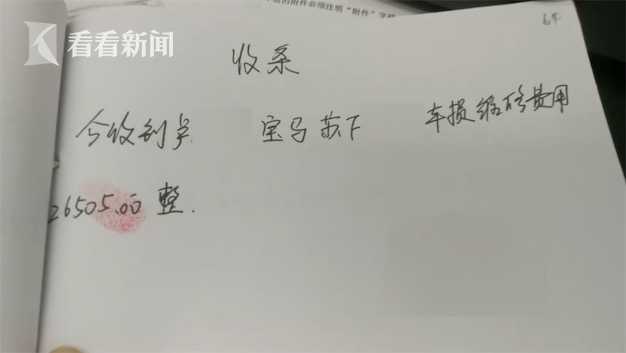 看看新闻
收条
今收到
宝马苏F
车损维修费用
26505.00 整.